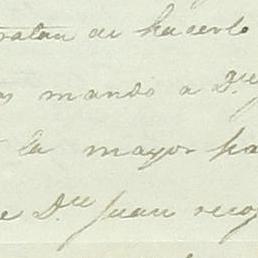 tratan de hacerlo
mando a D.n
la mayor
e D.n Juan